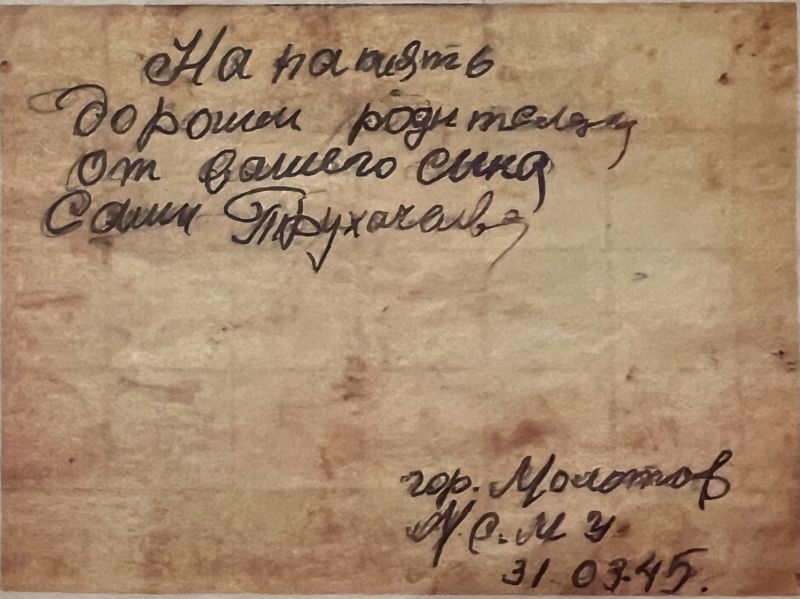 На память
дорогим родителям
от вашего сына
Саши Трухачева
гор. Молотов
31 03.45.